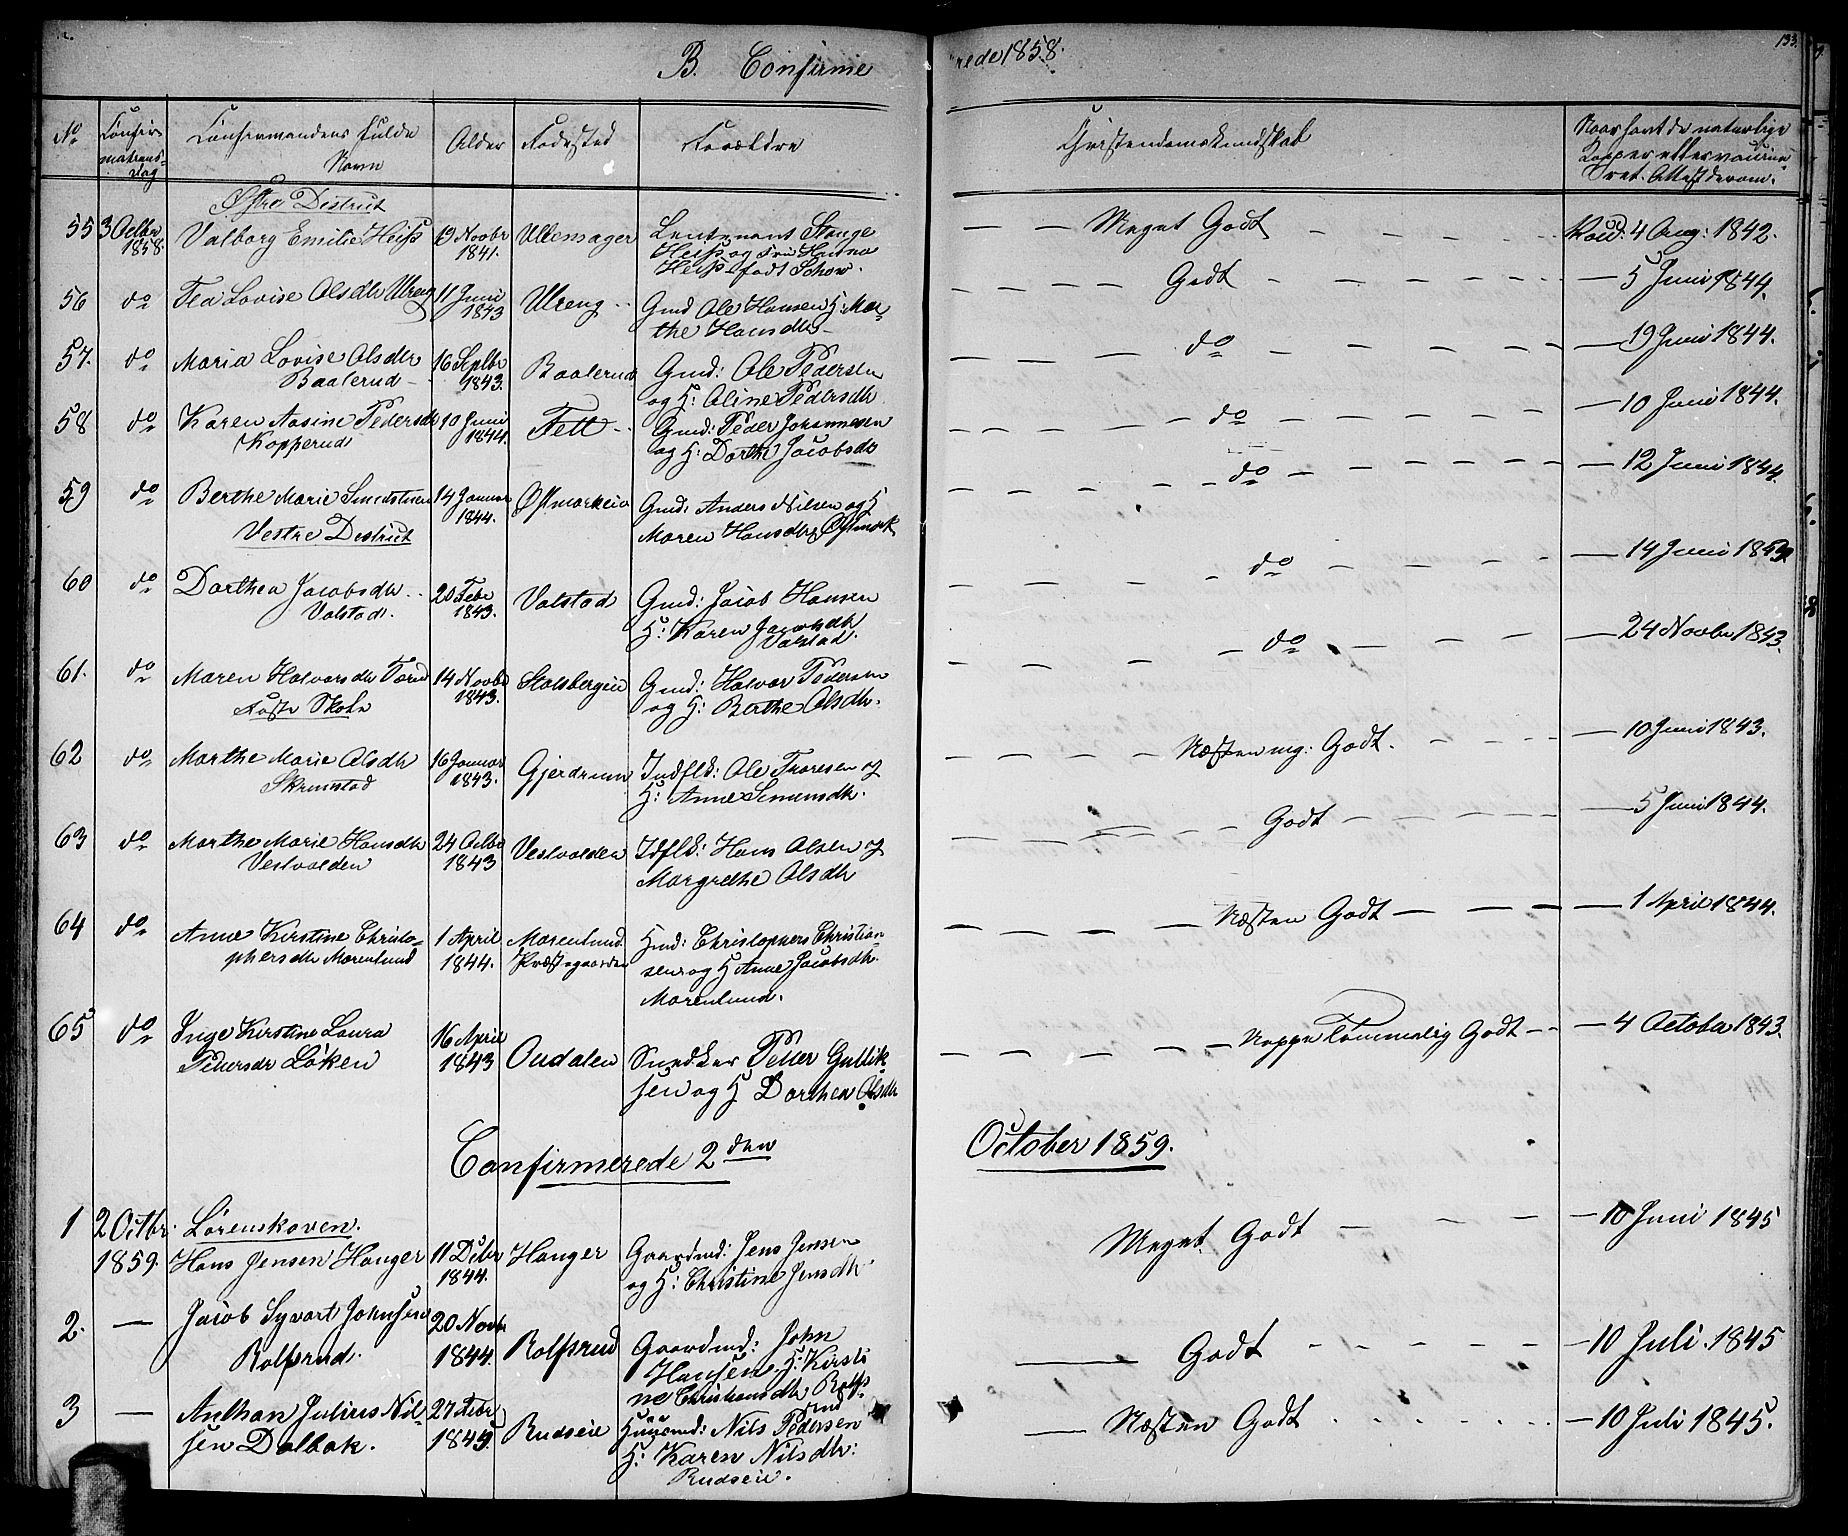 B. Confirme
rede 1858.
133.
No
Confir-
mations-
dag
Confirmandens fulde
Navn
Alder
Fødested
Forældre
Christendomskundskab
Naar havt de naturlige
Kopper eller vaccine-
ret. Attest derom.
Østre District
55 3 Octbr 1858 Valborg Emilie Heiss 19 Novbr 1841. Ullensager Lieutenant Stange
Heiss og Fru Hanna
Heiss født Schow.
Meget Godt Vacc: 4 Aug: 1842.
56 do Tea Lovise Olsdtr Ulreng 11 Juni 1843 Ulreng Gmd Ole Hansen H: Mar-
the Hansdtr
Godt 5 Juni 1844.
57. do Maria Lovise Olsdtr
Baalerud
16 Septbr 1843. Baalerud Gmd: Ole Pedersen
og H: Oline Pedersdtr
do 19 Juni 1844.
58 do Karen Aasine Pedersdtr
Kopperud
10 Juni 1844. Fett Gmd: Peder Johannesen
og H: Dorthe Jacobsdtr
do 10 Juni 1844.
59 do Berthe Marie Smedstuen 14 Januar 1844. Østmarkeie Gmd: Anders Nilsen og H
Maren Hansdtr Østmark
do 12 Juni 1844
Vestre District
60 do Dorthea Jacobsdtr
Valstad.
20 Febr 1843. Valstad Gmd: Jacob Hansen
H: Karen Jacobsdtr
Valstad.
do 14 Juni 1843.
61. do Maren Halvorsdtr 14 Novbr 1843. Stalsbergeie Gmd: Halvor Pedersen
og H: Berthe Olsdtr.
do 24 Novbr 1843.
Faste Skole
62 do Marthe Marie Olsdtr
Skrimstad
16 Januar 1843. Gjerdrum Indflt: Ole Thoresen og
H: Anne Simensdtr.
Næsten mg: Godt. 10 Juni 1843.
63 do Marthe Marie Hansdtr
Vestvolden
24 Octbr 1843 Vestvolden Idflt: Hans Olsen og
Margrethe Olsdtr
Godt 5 Juni 1844.
64 do Anne Kirstine Christo-
phersdtr Marenlund
1 April 1844. Marenlund
Præstegaarden
Hmd: Christophers Christian-
sen og H Anne Jacobsdtr.
Marenlund.
Næsten Godt 1 April 1844.
65 do Inge Kirstine Laura
Petersdr Løken
16 April 1843 Oudalen Snedker Petter Gullik
sen og H Dorthea Olsdtr
Neppe Temmelig Godt 4 October 1843.
Confirmerede 2den
October 1859.
Lørenskoven.
1 2 Octbr. 1859. Hans Jensen Hauger 11 Decbr 1844. Hauger Gaardmd: Jens Jensen
og H: Christine Jensdtr.
Meget Godt 10 Juni 1845
2. Jacob Syvart Johnsen
Rolfsrud.
20 Novbr 1844. Rolfsrud Gaardmd: John
Hansen H: Kirsti
ne Christiansdtr Rolfs
rud
Godt 10 Juli. 1845
3 Anthon Julius Nil
sen Dalbak.
27 Febr 1845 Rudseie Huusmd: Nils Pedersen
H: Karen Nilsdtr:
Rudseie.
Næsten Godt 10 Juli 1845.